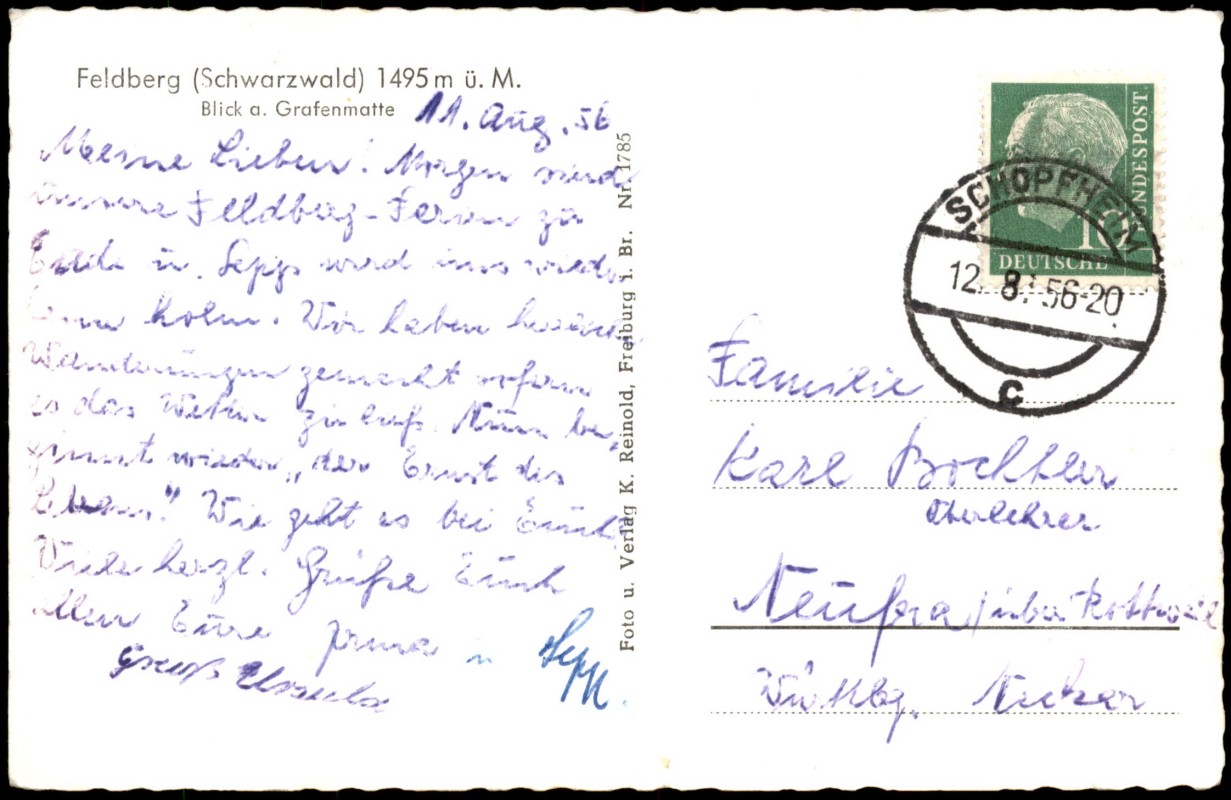 Feldberg (Schwarzwald) 1495 m ü. M.
Blick a. Grafenmatte
11. Aug. 56
Meine Lieben! Morgen sind
unsere Feldberg-Ferien zu
Ende u. Sepp wird uns wieder
holen. Wir haben
Wanderungen gemacht sofern
es das Wetter zuließ. Nun be-
ginnt wieder "der Ernst des
Lebens". Wie geht es bei Euch?
Viele herzl. Grüße Euch
allen Eure u. Sepp.
Gruß Ursula
Foto u. Verlag K. Reinold, Freiburg i. Br. Nr. 1785
DEUTSCHE BUNDESPOST
10
SCHOPFHEIM
12. 8. 56-20
c
Familie
Karl Bochtler
Oberlehrer
Neufra / über Rottweil
Württbg. Neckar